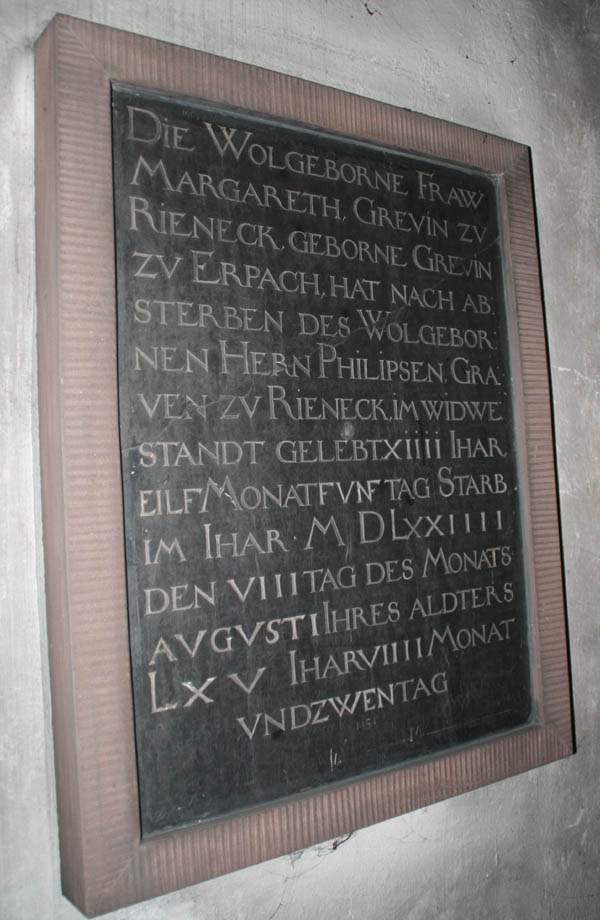 DIE WOLGEBORNE FRAW
MARGARETH, GREVIN ZV
RIENECK, GEBORNE GREVIN
ZV ERPACH, HAT NACH AB.
STERBEN DES WOLGEBOR
NEN HERN PHILIPSEN, GRA.
VEN ZV RIENECK, IM WIDWE
STANDT GELEBT XIIII IHAR,
EILF MONAT FVNF TAG STARB
IM IHAR · M DLXXIIII
DEN VIII TAG DES MONATS
AVGVSTI IHRES ALDTERS
LXV IHAR VIIII MONAT
VND ZWEN TAG